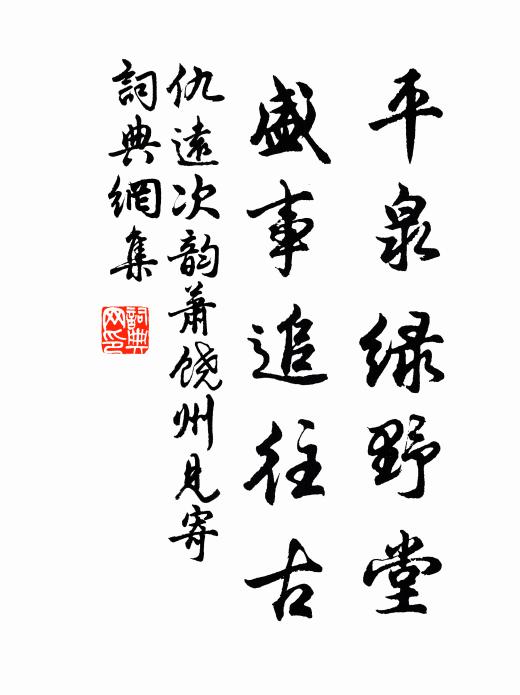 平泉绿野堂
盛事追往古
仇遠次韵萧饶州見寄
詞典網集
詞典网印